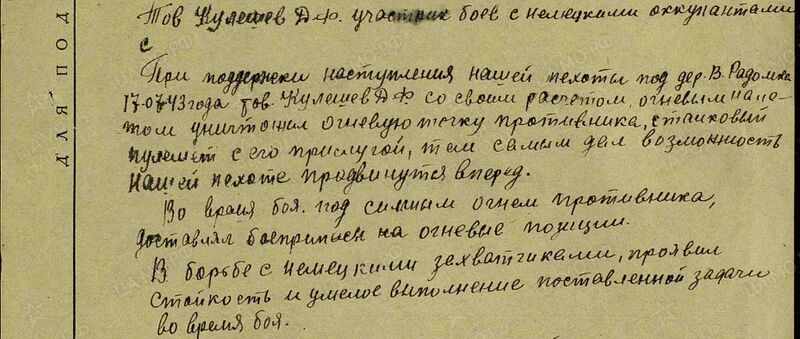 Тов Кулешев Д.Ф. участник боев с немецкими оккупантами
с
При поддержки наступления нашей пехоты под дер. В. Радомка
17.07.43 года тов. Кулешев Д Ф со своим расчетом, огневым нале-
том уничтожил огневую точку противника, станковый
пулемет с его прислугой, тем самым дал возможность
нашей пехоте продвинутся вперед.
Во время боя. под сильным огнем противника,
доставлял боеприпасы на огневые позиции.
В борьбе с немецкими захватчиками, проявил
стойкость и умелое выполнение поставленной задачи
во время боя.
ДЛЯ ПОД